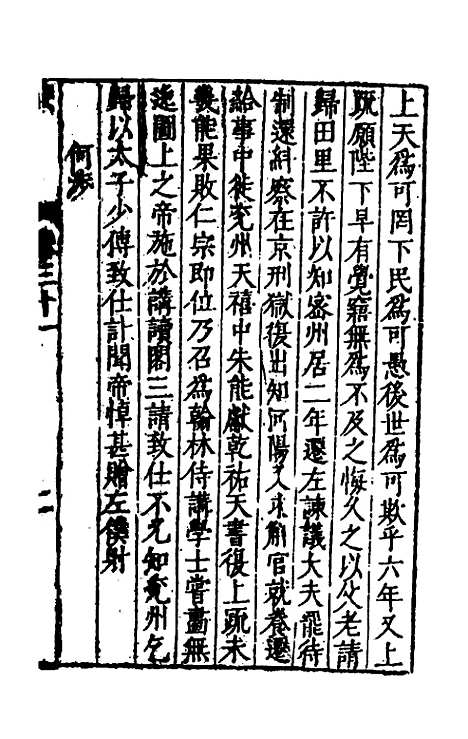 上天爲可罔下民爲可愚後世爲可欺乎六年又上
疏願陛下早有覺寤無爲不及之悔久之以父老請
歸田里不許以知密州居二年遷左諫議大夫罷待
制還糾察在京刑獄復出知河陽又求解官就養遷
給事中徙兖州天禧中朱能獻乾祐天書復上疏未
幾能果敗仁宗即位乃召爲翰林侍講學士嘗畫無
逸圖上之帝施於講讀閣三請致仕不允知兖州乞
歸以太子少傅致仕訃聞帝悼甚贈左僕射
何涉
三十一
二